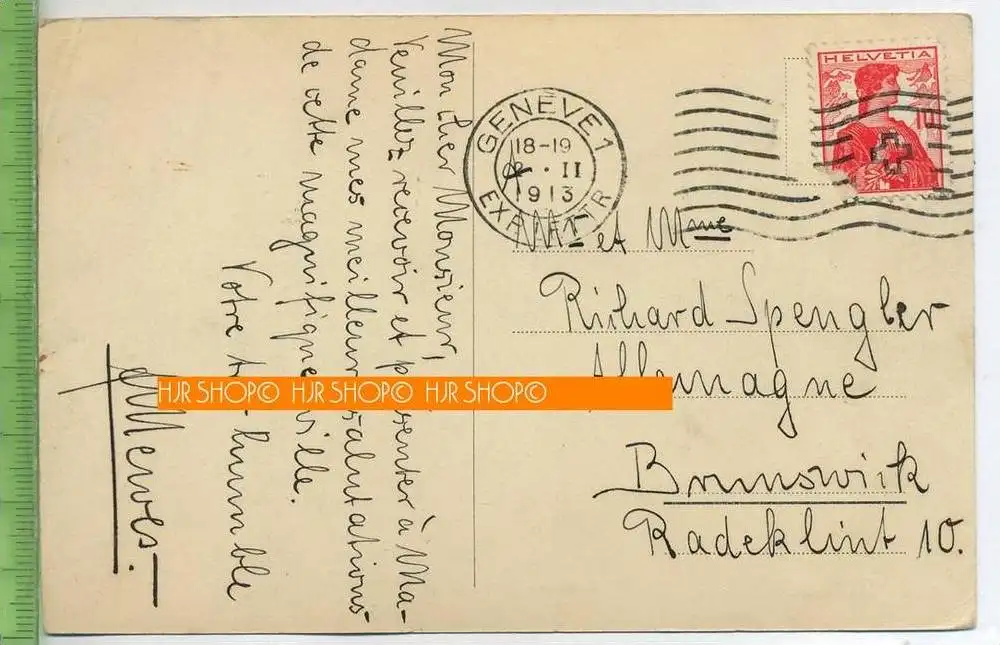 Mon cher Monsieur,
Veuillez recevoir et à Ma-
dame mes meilleur salutations
de cette magnifique ville.
Votre humble
HELVETIA
GENÈVE 1
18-19
II
1913
Mr et Mme
Richard Spengler
Allemagne
Brunswick
Radeklint 10.
HJR SHOP© HJR SHOP© HJR SHOP©